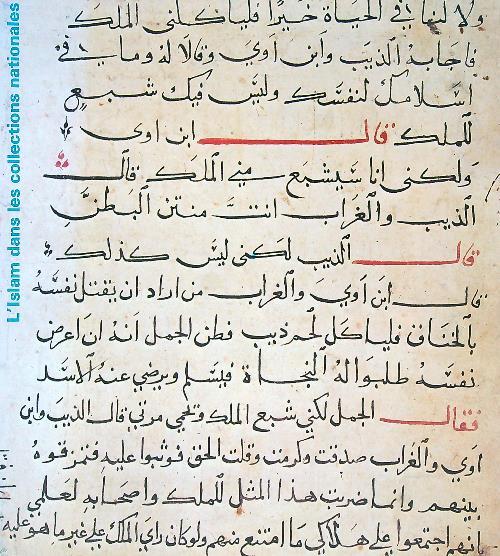 ولا لنا في الحياة خيرا فلياكلني الملك
فاجابه الذيب وابن اوي وقالا له وما في
اسلامك لنفسك وليس فيك شبع
للملك قال ابن اوى
ولكني انا سيشبع مني الملك قال
الذيب والغراب انت منتن البطن
قال الذيب لكني ليس كذلك
قال ابن اوي والغراب من اراد ان يقتل نفسه
بالخناق فلياكل لحم ذيب فظن الجمل انه ان اعرض
نفسه طلبوا له النجاة فيسلم ويرضي عنه الاسد
فقال الجمل لكني شبع الملك ولحمي مري قال الذيب وابن
اوي والغراب صدقت وكرمت وقلت الحق فوثبوا عليه فمزقوه
بينهم وانما ضربت هذا المثل للملك واصحابه لعلمي
انهم اجتمعوا على هلاكي ما امتنع منهم ولو كان راي الملك على غير ما هو عليه
L'Islam dans les collections nationales